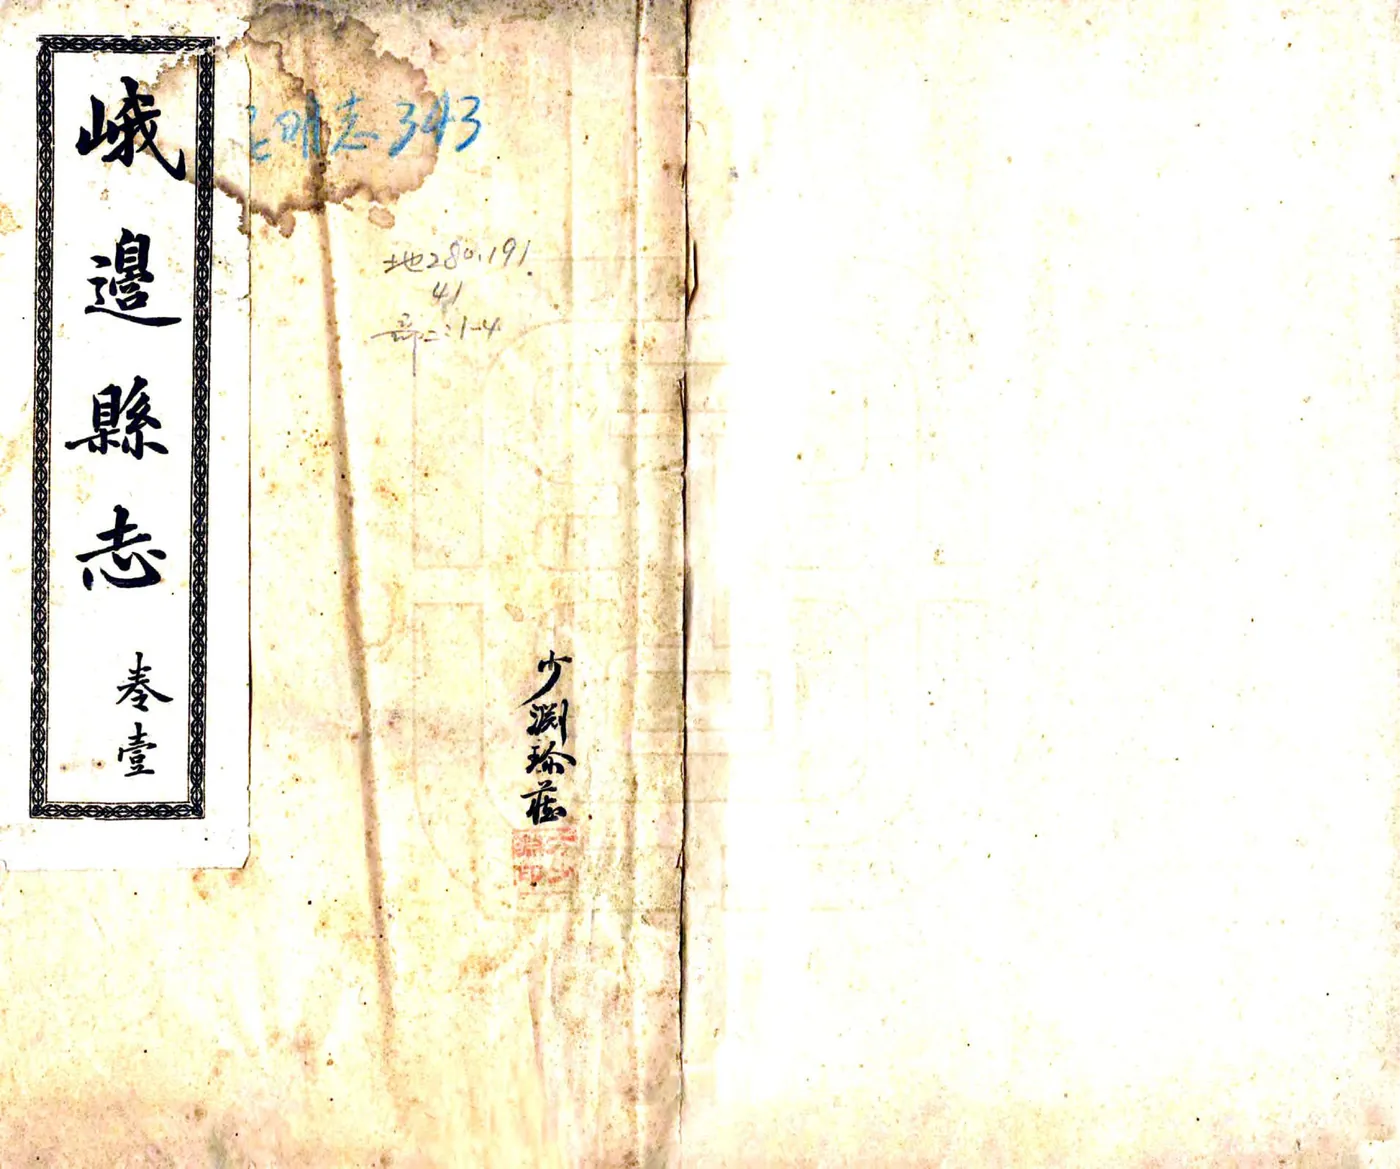 峨邊縣志
卷壹
志343
地280.191
41
部二:1-4
少淵瑜藏